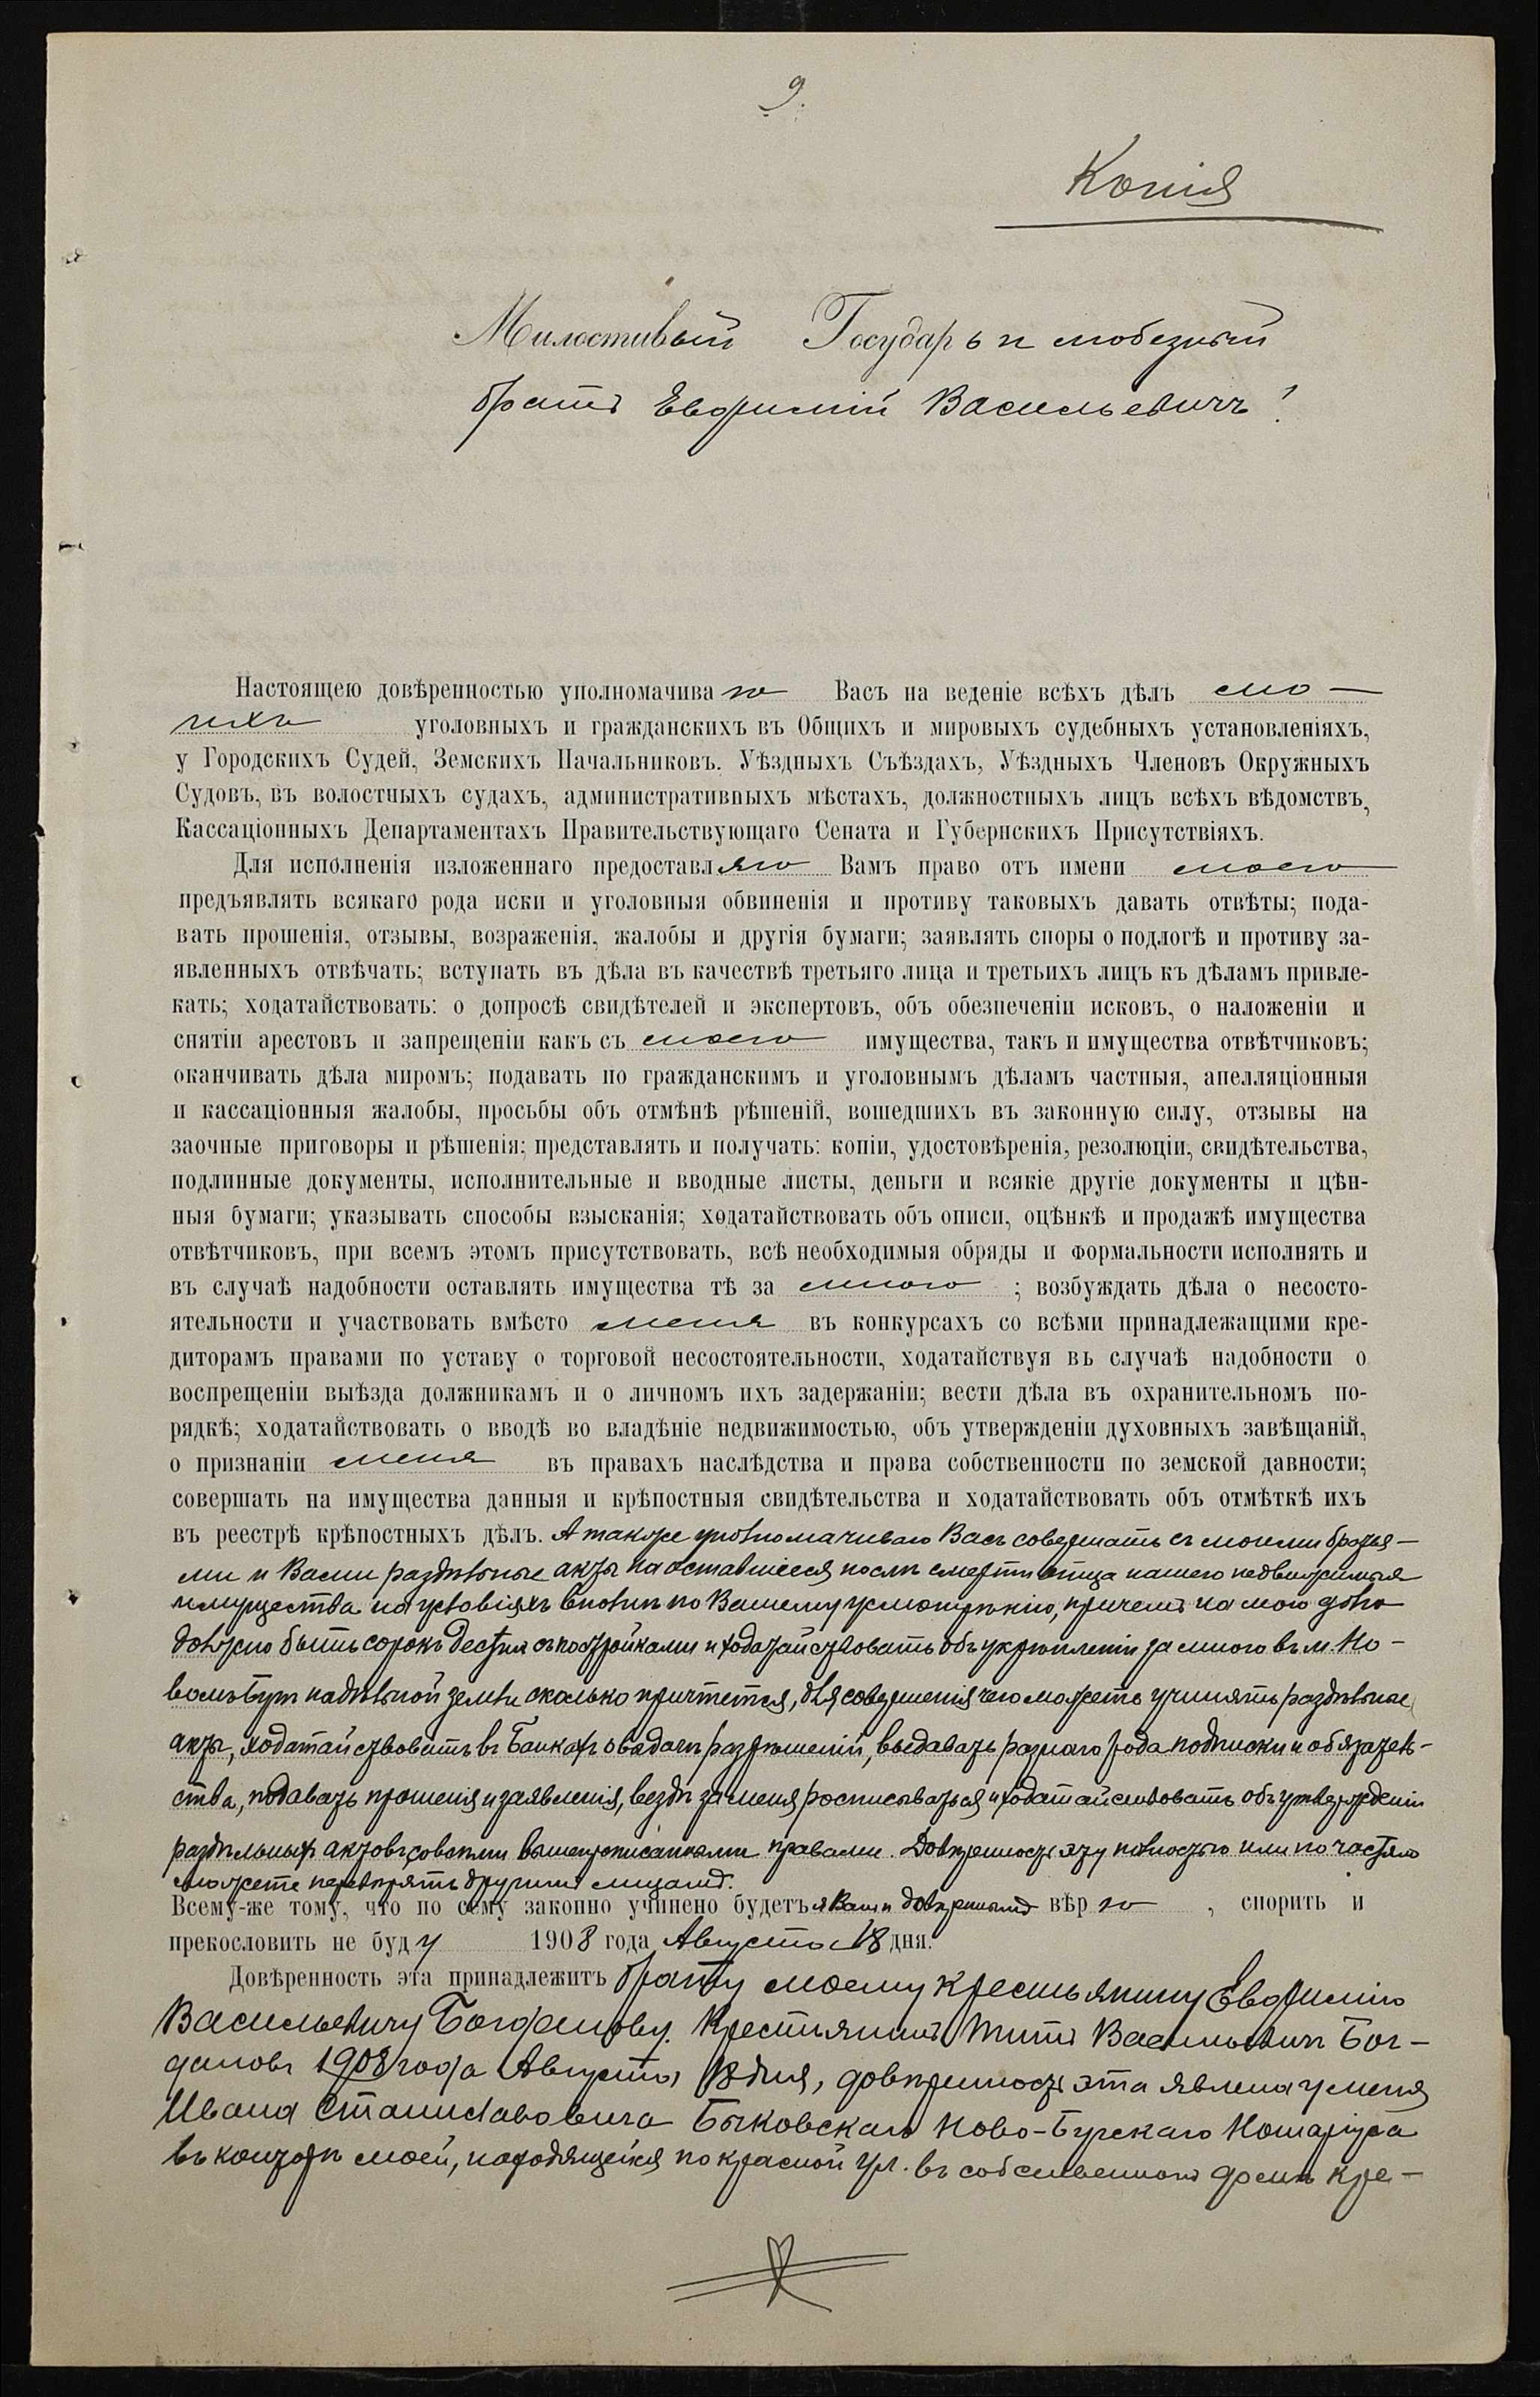 9.
Копія
Милостивый Государь и любезный
братъ Евфимій Васильевичъ!
Настоящею довѣренностью уполномачиваю Васъ на веденіе всѣхъ дѣлъ мо-
ихъ уголовныхъ и гражданскихъ въ Общихъ и мировыхъ судебныхъ установленіяхъ,
у Городскихъ Судей, Земскихъ Начальниковъ. Уѣздныхъ Съѣздахъ, Уѣздныхъ Членовъ Окружныхъ
Судовъ, въ волостныхъ судахъ, административныхъ мѣстахъ, должностныхъ лицъ всѣхъ вѣдомствъ,
Кассаціонныхъ Департаментахъ Правительствующаго Сената и Губернскихъ Присутствіяхъ.
Для исполненія изложеннаго предоставляю Вамъ право отъ имени моего
предъявлять всякаго рода иски и уголовныя обвиненія и противу таковыхъ давать отвѣты; пода-
вать прошенія, отзывы, возраженія, жалобы и другія бумаги; заявлять споры о подлогѣ и противу за-
явленныхъ отвѣчать; вступать въ дѣла въ качествѣ третьяго лица и третьихъ лицъ къ дѣламъ привле-
кать; ходатайствовать: о допросѣ свидѣтелей и экспертовъ, объ обезпеченіи исковъ, о наложеніи и
снятіи арестовъ и запрещеніи какъ съ моего имущества, такъ и имущества отвѣтчиковъ;
оканчивать дѣла миромъ; подавать по гражданскимъ и уголовнымъ дѣламъ частныя, апелляціонныя
и кассаціонныя жалобы, просьбы объ отмѣнѣ рѣшеній, вошедшихъ въ законную силу, отзывы на
заочные приговоры и рѣшенія; представлять и получать: копіи, удостовѣренія, резолюціи, свидѣтельства,
подлинные документы, исполнительные и вводные листы, деньги и всякіе другіе документы и цѣн-
ныя бумаги; указывать способы взысканія; ходатайствовать объ описи, оцѣнкѣ и продажѣ имущества
отвѣтчиковъ, при всемъ этомъ присутствовать, всѣ необходимыя обряды и формальности исполнять и
въ случаѣ надобности оставлять имущества тѣ за мною ; возбуждать дѣла о несосто-
ятельности и участвовать вмѣсто меня въ конкурсахъ со всѣми принадлежащими кре-
диторамъ правами по уставу о торговой несостоятельности, ходатайствуя въ случаѣ надобности о
воспрещеніи выѣзда должникамъ и о личномъ ихъ задержаніи; вести дѣла въ охранительномъ по-
рядкѣ; ходатайствовать о вводѣ во владѣніе недвижимостью, объ утвержденіи духовныхъ завѣщаній,
о признаніи меня въ правахъ наслѣдства и права собственности по земской давности;
совершать на имущества данныя и крѣпостныя свидѣтельства и ходатайствовать объ отмѣткѣ ихъ
въ реестрѣ крѣпостныхъ дѣлъ. А также уполномачиваю Васъ совершать съ моими братья-
ми и Вами раздѣльные акты на оставшіееся послѣ смерти отца нашего недвижимыя
имущества на условіяхъ вполнѣ по Вашему усмотрѣнію, причемъ на мою долю
должно быть сорокъ десятин съ постройками и ходатайствовать объ укрѣпленіи за мною въ м. Но-
вомъ Бугѣ надѣльной земли сколько причтется, для совершенія чего можете учинять раздѣльные
акты, ходатайствовать въ Банкахъ о выдачѣ разрѣшеній, выдавать разнаго рода подписки и обязатель-
ства, подавать прошенія и заявленія, вездѣ за меня росписываться и ходатайствовать объ утвержденіи
раздѣльныхъ актовъ, со всѣми вышеуписанными правами. Довѣренность эту полностью или по частямъ
можете перевѣрять другимъ лицамъ.
Всему-же тому, что по сему законно учинено будетъ я Вамъ довѣрителю вѣрю , спорить и
прекословить не буду 1908 года Августа 18 дня.
Довѣренность эта принадлежитъ брату моему крестьянину Евфимію
Васильевичу Богданову. Крестьянинъ Титъ Васильевичъ Бог-
дановъ 1908 года Августа 18 дня, довѣренность эта явлена у меня
Ивана Станиславовича Быковскаго Ново-Бугскаго Нотаріуса
въ конторѣ моей, находящейся по красной ул. въ собственномъ домѣ кре-